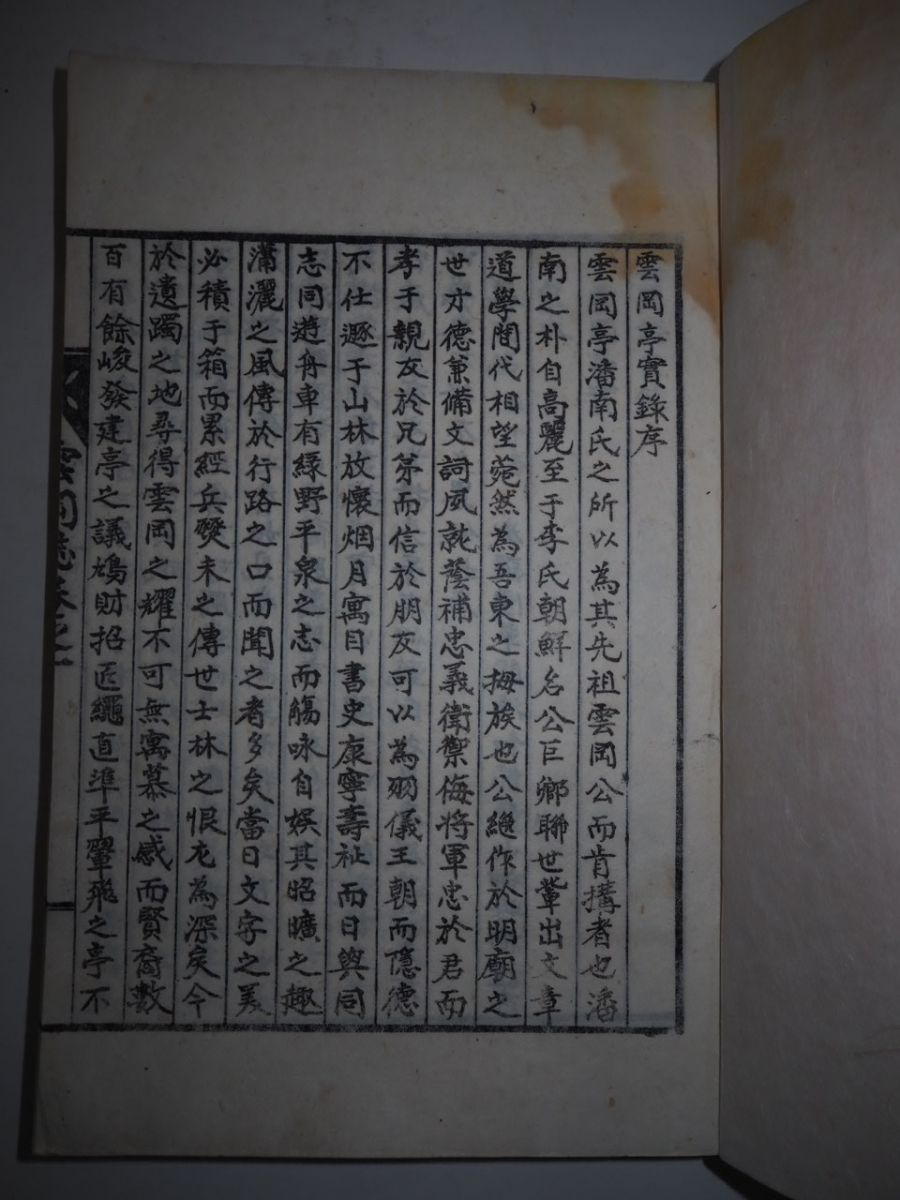 雲岡亭實錄序
雲岡亭潘南氏之所以為其先祖雲岡公而肯搆者也潘
南之朴自高麗至于李氏朝鮮名公巨鄉聯世輩出文章
道學間代相望菀然為吾東之拇族也公繼作於明廟之
世才德兼備文詞夙就蔭補忠義衛禦侮將軍忠於君而
孝于親友於兄弟而信於朋友可以為羽儀王朝而隱德
不仕遯于山林放懷烟月寓目書史康寧壽祉而日與同
志同遊舟車有綠野平泉之志而觴咏自娛其昭曠之趣
瀟灑之風傳於行路之口而聞之者多矣當日文字之美
必積于箱而累經兵燹未之傳世士林之恨尤為深矣今
於遺躅之地尋得雲岡之耀不可無寓慕之感而賢裔數
百有餘峻發建亭之議鳩財招匠繩直準平翬飛之亭不
雲岡誌卷之一